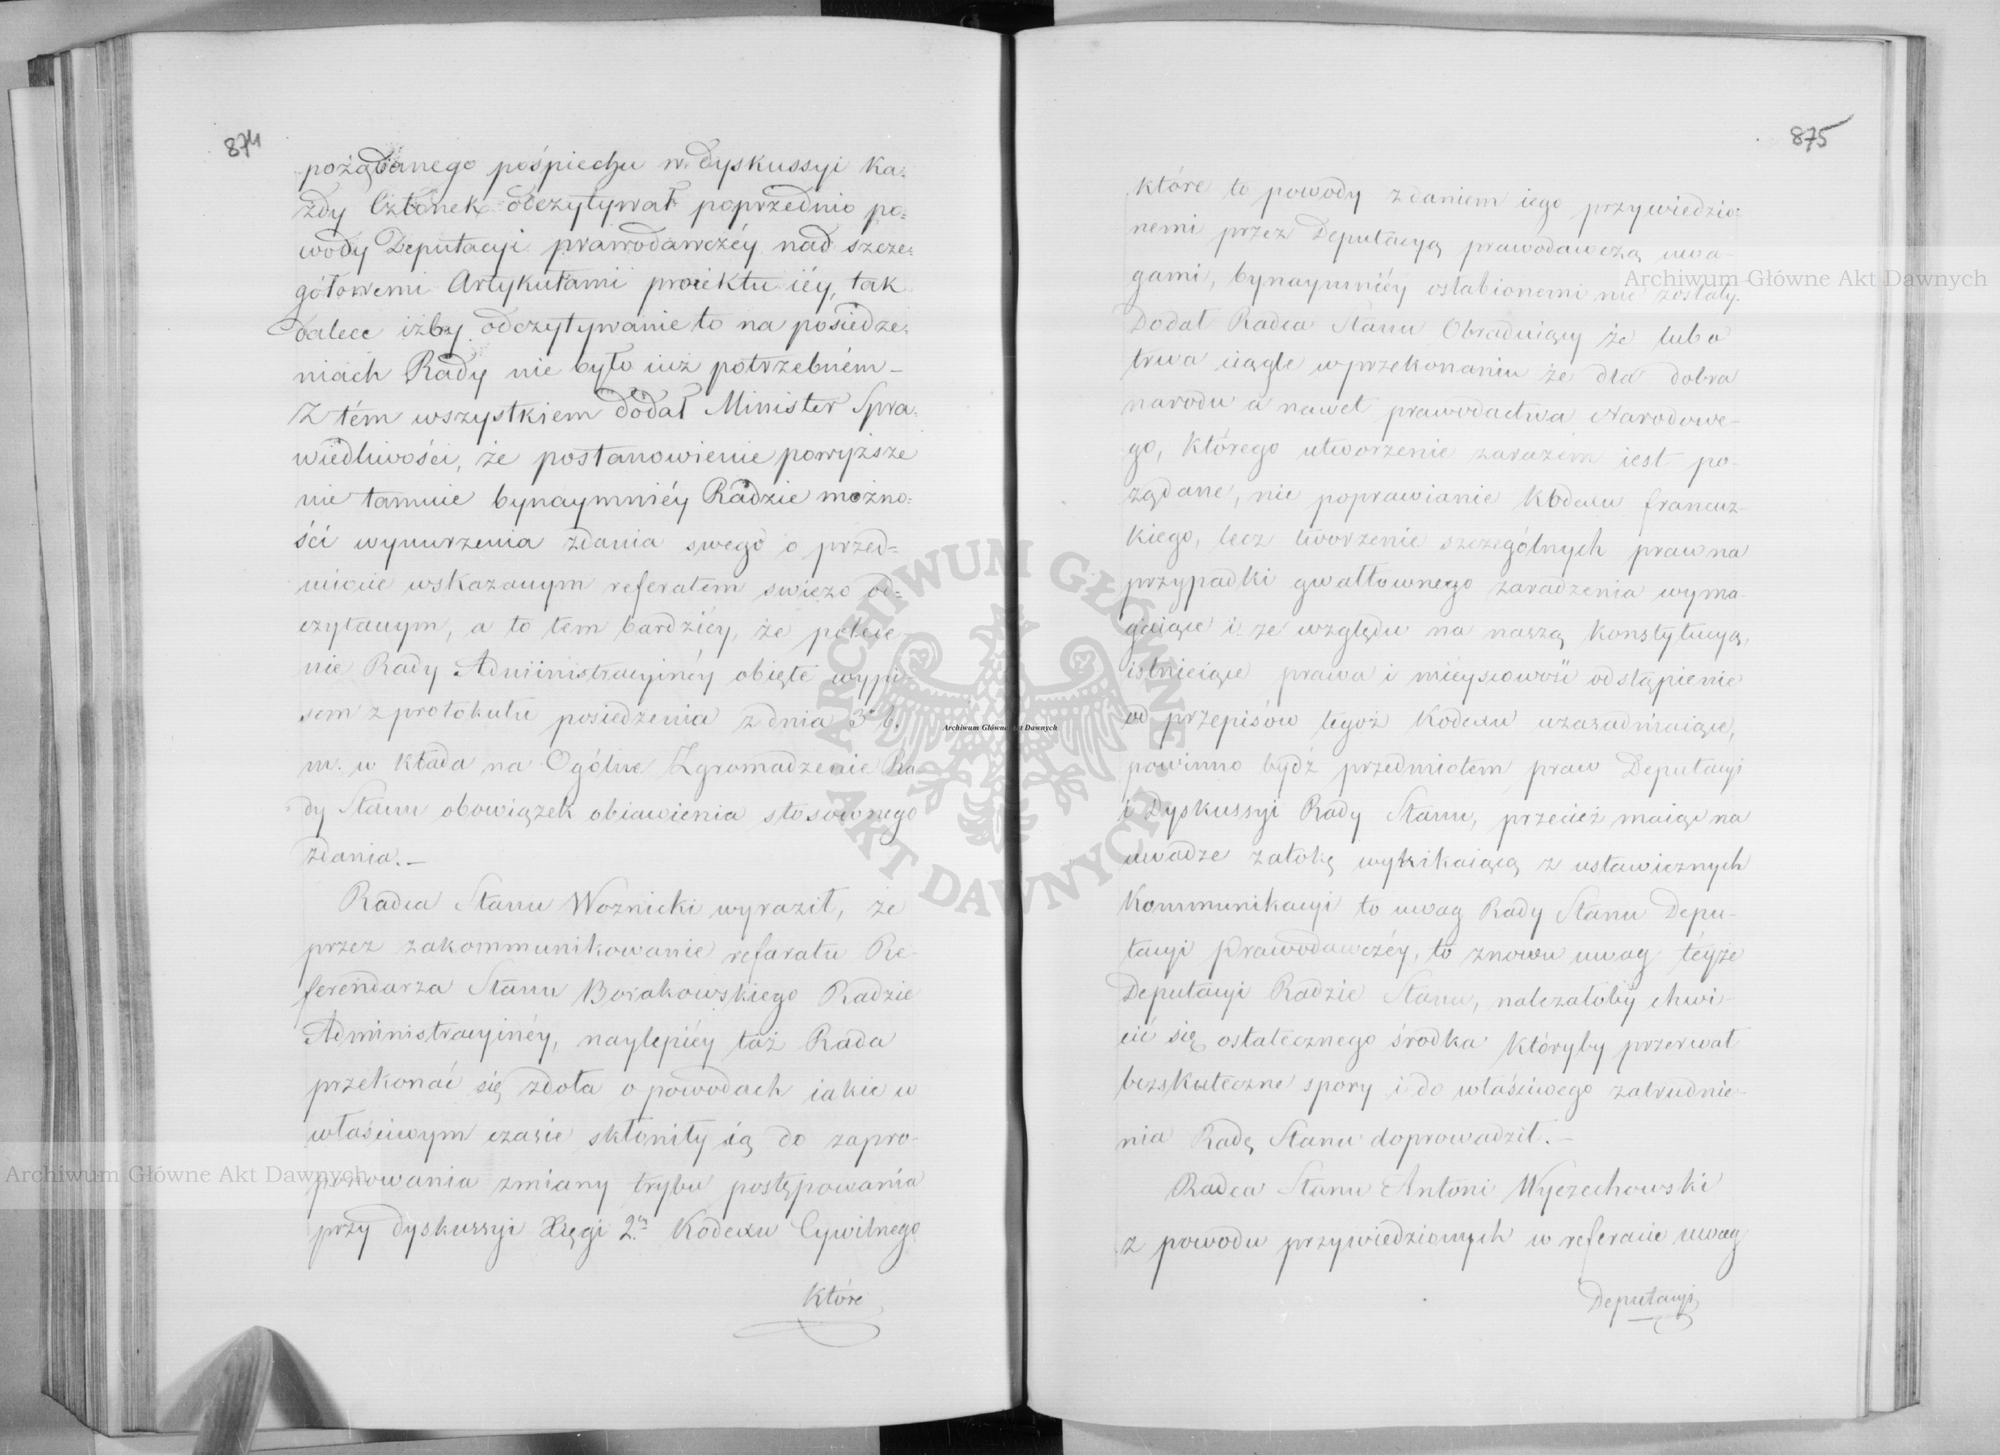 874
pożądanego pośpiechu w dyskussyi ka=
żdy Członek odczytywał poprzednio po=
wody Deputacyi prawodawczéy nad szcze=
gółowemi Artykułami proiektu iéy, tak
dalece iżby odczytywanie to na posiedze=
niach Rady nie było iuż potrzebném –
Z tém wszystkiem dodał Minister Spra=
wiedliwości, że postanowienie powyższe
nie tamuie bynaymniéy Radzie możno=
ści wynurzenia zdania swego o przed=
miocie wskazanym referatem świeżo od=
czytanym, a to tem bardziéy, że polece=
nie Rady Administracyinéy obięte wypi=
sem z protokułu posiedzenia z dnia 3º b.
m. wkłada na Ogólne Zgromadzenie Ra=
dy Stanu obowiązek obiawienia stosownego
zdania. –
Radca Stanu Woznicki wyraził, że
przez zakommunikowanie referatu Re=
ferendarza Stanu Borakowskiego Radzie
Administracyinéy, naylepiéy taż Rada
przekonać się zdoła o powodach iakie w
właściwym czasie skłoniły ią do zapro=
ponowania zmiany trybu postępowania
przy dyskussyi Xięgi 2éy Kodexu Cywilnego
Które
875
które to powody zdaniem iego przywiedzio=
nemi przez Deputacyą prawodawczą uwa=
gami, bynaymniéy osłabionemi nie zostały.
Dodał Radca Stanu Obradujący że lubo
trwa ciągle w przekonaniu że dla dobra
narodu a nawet prawodactwa Narodowe=
go, którego utworzenie zarazem iest po=
żądane, nie poprawianie Kodexu francuz=
kiego, lecz tworzenie szczególnych praw na
przypadki gwałtownego zaradzenia wyma=
gaiące i ze względu na naszą Konstytucyą,
istnieiące prawa i mieyscowość odstąpienie
od przepisów tegoż Kodexu uzasadniaiące,
powinno bydź przedmiotem prac Deputacyi
i Dyskussyi Rady Stanu, przecież maiąc na
uwadze zwłokę wynikaiącą z ustawicznych
Kommunikacyi to uwag Rady Stanu Depu=
tacyi Prawodawczéy, to znowu uwag téyże
Deputacyi Radzie Stanu, należałoby chwy=
cić się ostatecznego środka któryby przerwał
bezskuteczne spory i do właściwego zatrudnie=
nia Radę Stanu doprowadził. –
Radca Stanu Antoni Wyczechowski
z powodu przywiedzionych w referacie uwag
Deputacyi
Archiwum Główne Akt Dawnych
Archiwum Główne Akt Dawnych
Archiwum Główne Akt Dawnych
ARCHIWUM GŁÓWNE AKT DAWNYCH